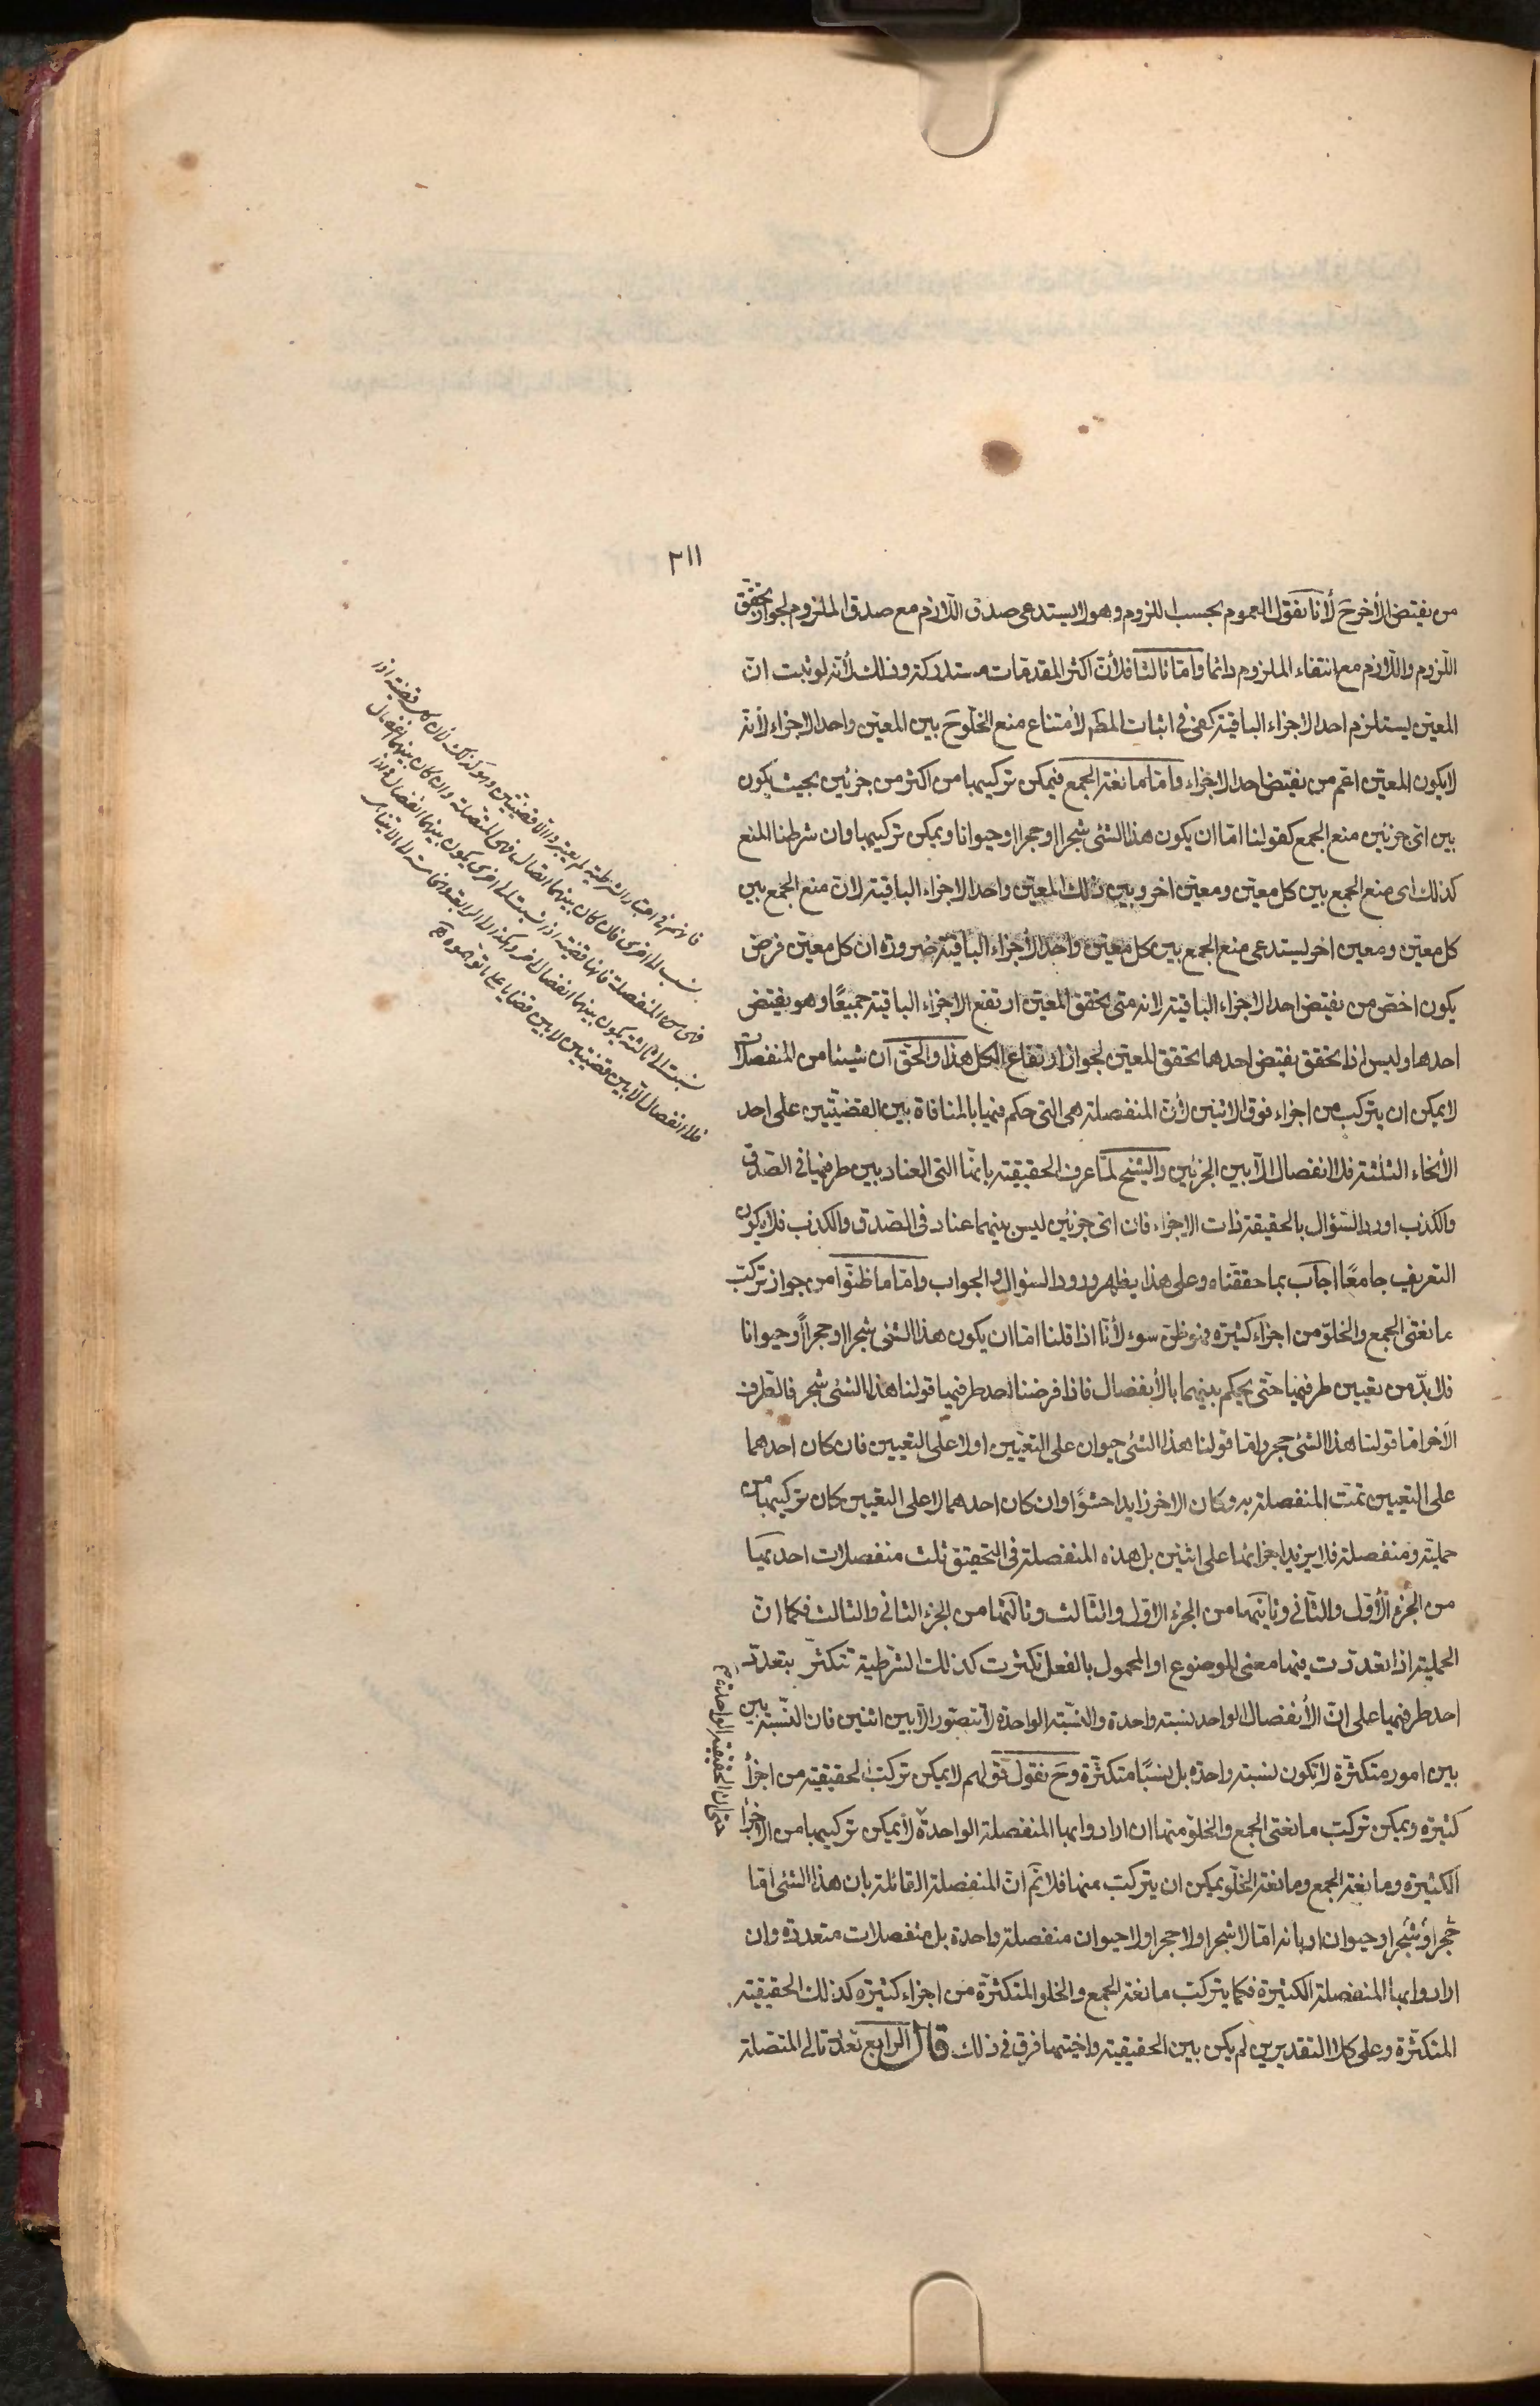 ٢١١
من نقيض الأخر ح لأنا نقول العموم بحسب اللزوم وهو لا يستدعى صدق اللازم مع صدق الملزوم لجواز تحقق
اللزوم واللازم مع انتفاء الملزوم دائما واما ثالثا فلأن اكثر المقدمات مستدركة وذلك لأنه لو ثبت ان
المعين يستلزم احد الاجزاء الباقية كفى فى اثبات المط لامتناع منع الخلو ح بين المعين واحد الاجزاء لأنه
لا يكون المعين اعم من نقيض احد الاجزاء واما مانعة الجمع فيمكن تركيبها من اكثر من جزئين بحيث يكون
بين اى جزئين منع الجمع كقولنا اما ان يكون هذا الشئ شجرا او حجرا او حيوانا ويمكن تركيبها وان شرطنا المنع
كذلك اى منع الجمع بين كل معين ومعين اخر وبين ذلك المعين واحد الاجزاء الباقية لان منع الجمع بين
كل معين ومعين اخر يستدعى منع الجمع بين كل معين واحد الأجزاء الباقية ضرورة ان كل معين فرض
يكون اخص من نقيض احد الاجزاء الباقية لانه متى تحقق المعين ارتفع الاجزاء الباقية جميعًا وهو نقيض
احدها وليس اذا تحقق نقيض احدها تحقق المعين لجواز ارتفاع الكل هذا والحق ان شيئا من المنفصلات
لا يمكن ان يتركب من اجزاء فوق الاثنين لأن المنفصلة هى التى حكم فيها بالمنافاة بين القضيتين على احد
الأنحاء الثلثة فلا انفصال الا بين الجزئين والشيخ لما عرف الحقيقية بانها التى العناد بين طرفيها فى الصدق
والكذب اورد السؤال بالحقيقة ذات الاجزاء فان اى جزئين ليس بينهما عناد فى الصدق والكذب فلا يكون
التعريف جامعًا اجاب بما حققناه وعلى هذا يظهر ورود السؤال والجواب واما ما ظنوا من جواز تركب
مانعتى الجمع والخلو من اجزاء كثيرة فهو ظن سوء لأنا اذا قلنا اما ان يكون هذا الشئ شجرا او حجرا او حيوانا
فلا بد من تعيين طرفيها حتى يحكم بينهما بالأنفصال فاذا فرضنا احد طرفيها قولنا هذا الشئ شجر فالطرف
الآخر اما قولنا هذا الشئ حجر واما قولنا هذا الشئ حيوان على التعيين اولا على التعيين فان كان احدهما
على التعيين تمت المنفصلة به وكان الاخر زايدا حشوًا وان كان احدهما لا على التعيين كان تركيبها من
حملية ومنفصلة فلا يزيد اجزائها على اثنين بل هذه المنفصلة فى التحقيق ثلث منفصلات احديها
من الجزء الأول والثانى وثانيتها من الجزء الاول والثالث وثالثتها من الجزء الثانى والثالث فكما ان
الحملية اذا تعددت فيها معنى الموضوع او المحمول بالفعل تكثرت كذلك الشرطية تتكثر بتعدد
احد طرفيها على ان الأنفصال الواحد نسبة واحدة والنسبة الواحدة لا تتصور الا بين اثنين فان النسبة بين
بين امور متكثرة لا تكون نسبة واحدة بل نسبًا متكثرة وح نقول قولهم لا يمكن تركب الحقيقية من اجزاء
كثيرة ويمكن تركب مانعتى الجمع والخلو منها ان ارادوا بها المنفصلة الواحدة لا يمكن تركيبها من الاجزاء
الكثيرة ومانعة الجمع ومانعة الخلو يمكن ان يتركب منها فلا نم ان المنفصلة القائلة بان هذا الشئ اما
حجر او شجر او حيوان او بانه اما لا شجر او لا حجر او لا حيوان منفصلة واحدة بل منفصلات متعددة وان
ارادوا بها المنفصلة الكثيرة فكما يتركب مانعة الجمع والخلو المتكثرة من اجزاء كثيرة كذلك الحقيقية
المتكثرة وعلى كلا التقديرين لم يكن بين الحقيقية واختيها فرق فى ذلك قال الرابع تعدد تالى المتصلة
حتى ان الحقيقية الواحدة
فانهم فى اعتبار الشرطية لم يعتبروا الا قضيتين وهو كذلك لأن كل قضية اذا
نسب الى اخرى فان كان بينهما اتصال فهى المتصلة وان كان بينهما انفصال
فهى من المنفصلة فانها قضية اذا نسبت الى اخرى يكون بينهما انفصال واذا
نسبت الى ثالثة يكون بينهما انفصال اخر وهكذا الى الرابعة والخامسة
فلا انفصال الا بين قضيتين لا بين قضايا على ما توهموه